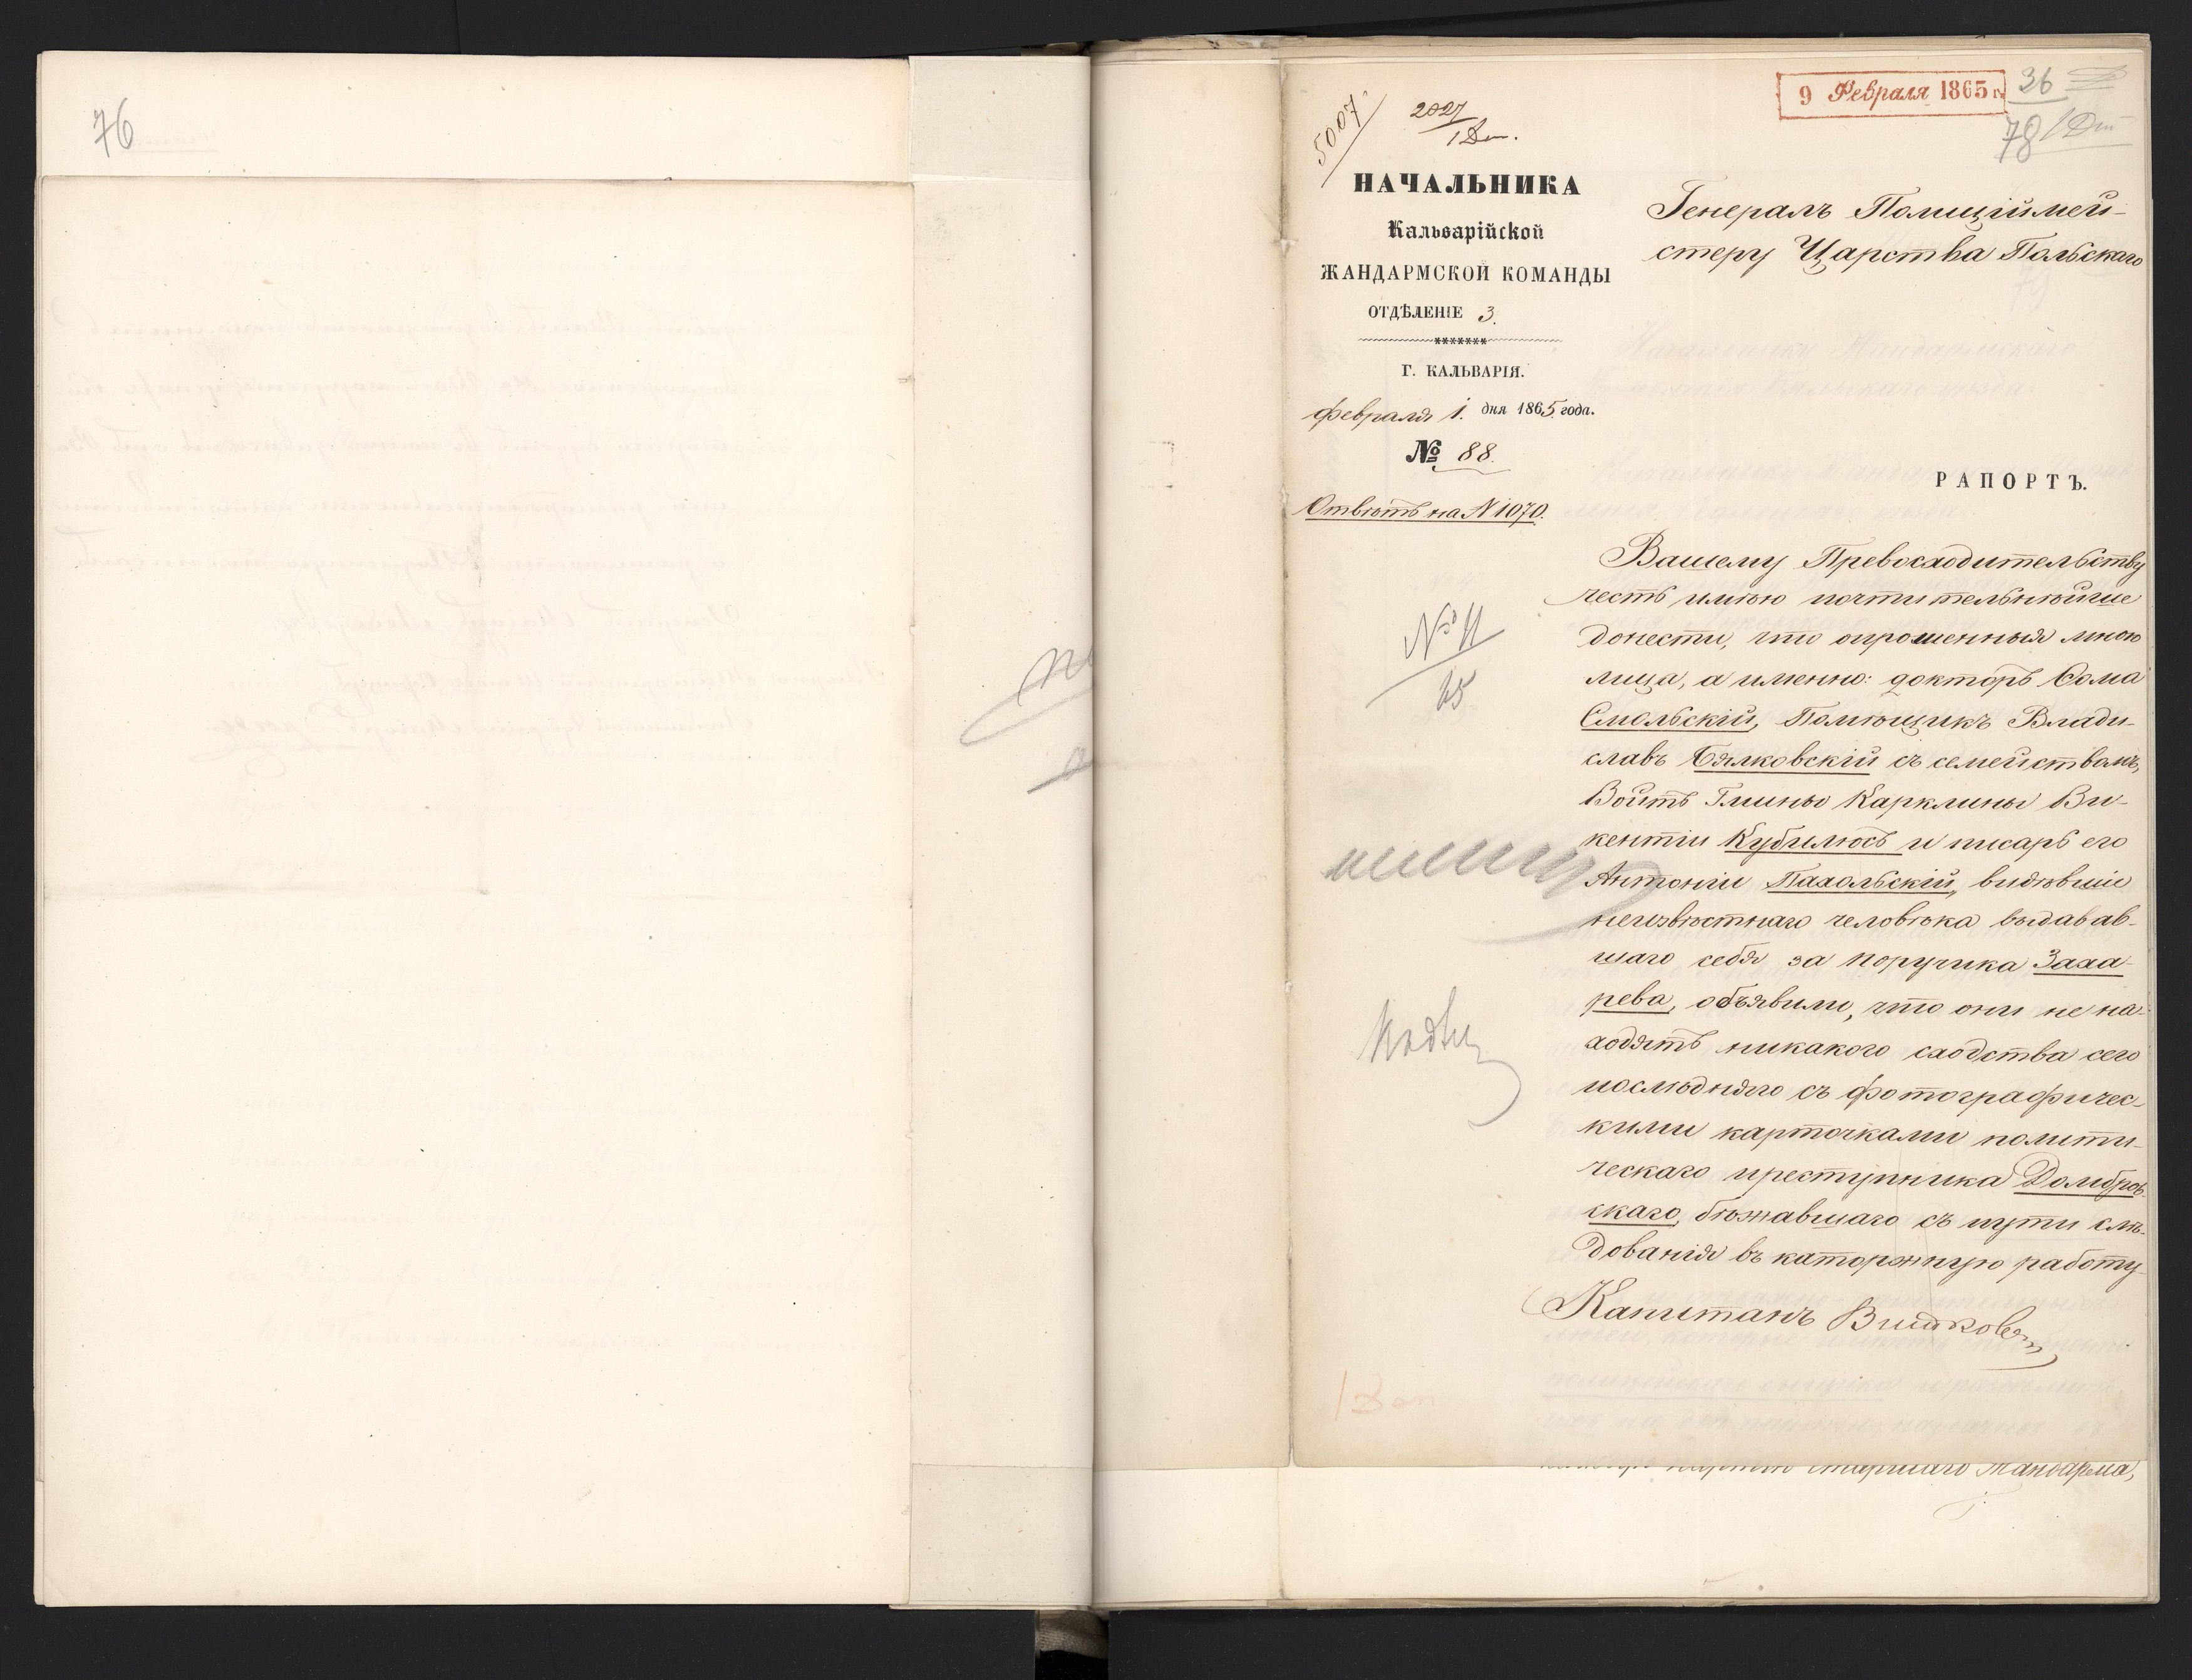 76
9 Февраля 1865 г.
36
78 1 Дт
5007
2027
1 Дт.
НАЧАЛЬНИКА
Кальварійской
ЖАНДАРМСКОЙ КОМАНДЫ
ОТДѢЛЕНІЕ 3.
Г. КАЛЬВАРІЯ.
Февраля 1. дня 1865 года.
№ 88.
Отвѣтъ на N 1070.
Генералъ Полиціймей-
стеру Царства Польскаго
РАПОРТЪ.
Вашему Превосходительству
честь имѣю почтительнѣйше
донести, что опрошенныя мною
лица, а именно: докторъ Ѳома
Смольскій, Помѣщикъ Влади-
славъ Бялковскій съ семействомъ,
Войтъ Гмины Карклины Ви-
кентій Кубилюсъ и писарь его
Антоній Пахольскій, видѣвшіе
неизвѣстнаго человѣка выдавав-
шаго себя за поручика Заха-
рева, объявили, что они не на-
ходятъ никакого сходства сего
послѣдняго съ фотографичес-
кими карточками полити-
ческаго преступника Домбров-
скаго, бѣжавшаго съ пути слѣ-
дованія въ каторжную работу.
Капитанъ
№ 11
65
старшаго Жандарма,